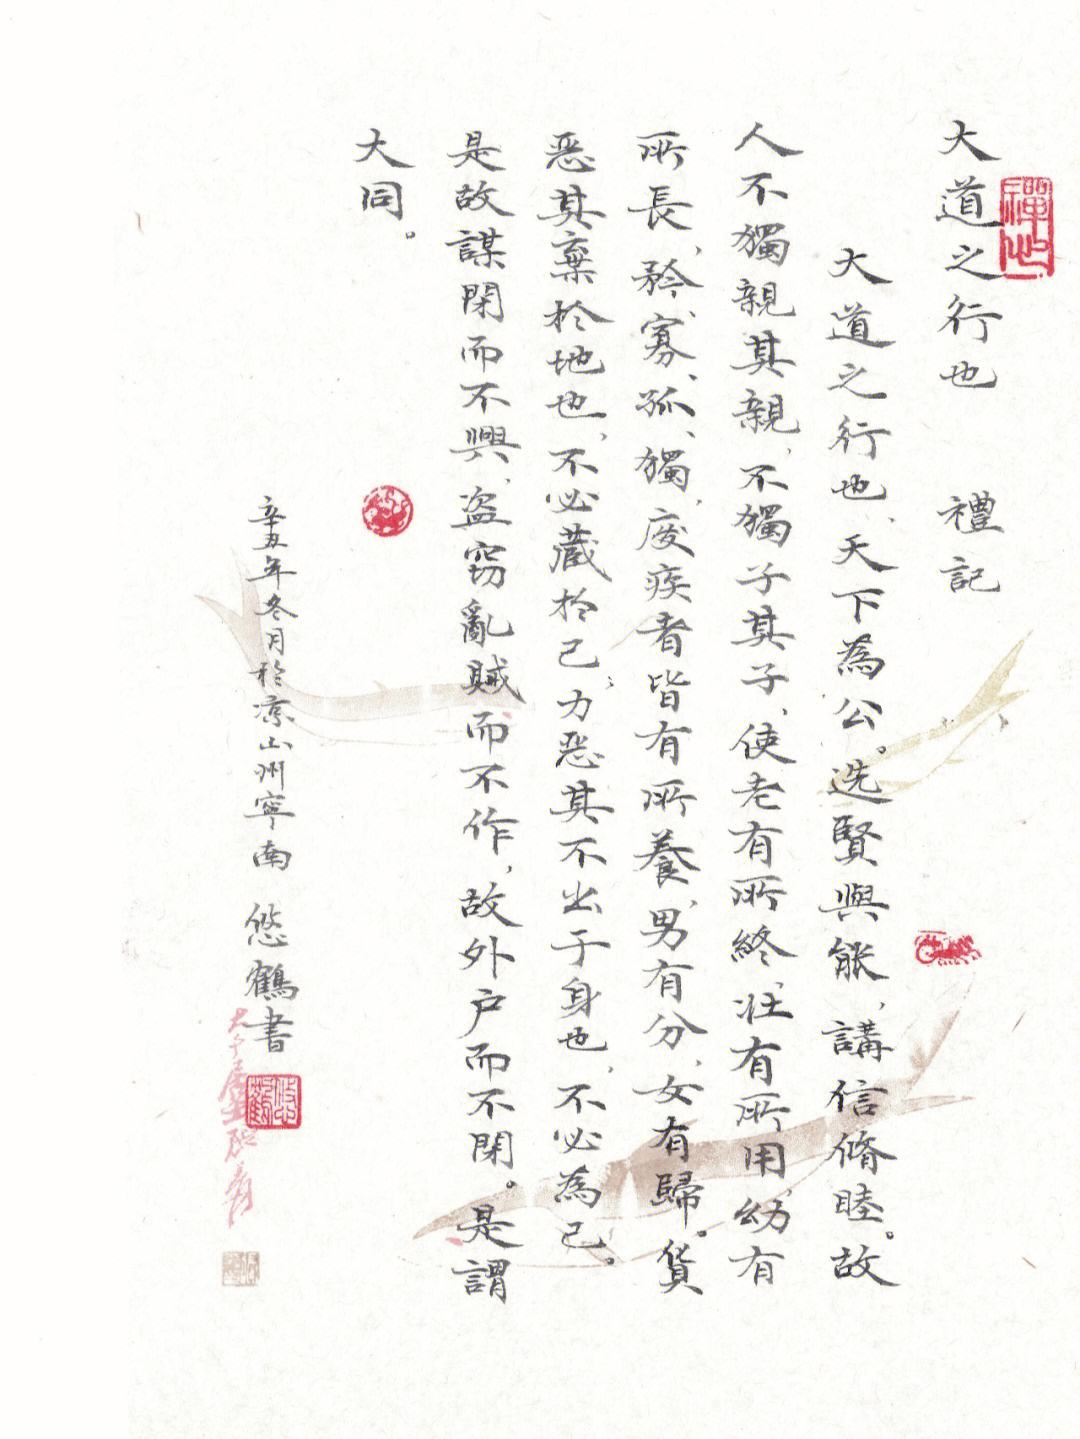 大道之行也　禮記
大道之行也、天下為公。选賢與能，講信脩睦。故
人不獨親其親，不獨子其子，使老有所終、壮有所用、幼有
所長，矜、寡、孤、獨，廢疾者皆有所養，男有分，女有歸。貨
惡其棄於地也，不必藏於己，力惡其不出于身也，不必為己。
是故謀閉而不興，盗窃亂賊而不作，故外户而不閉。是謂
大同。
辛丑年冬月於凉山州寧南　悠鶴書
悠鶴